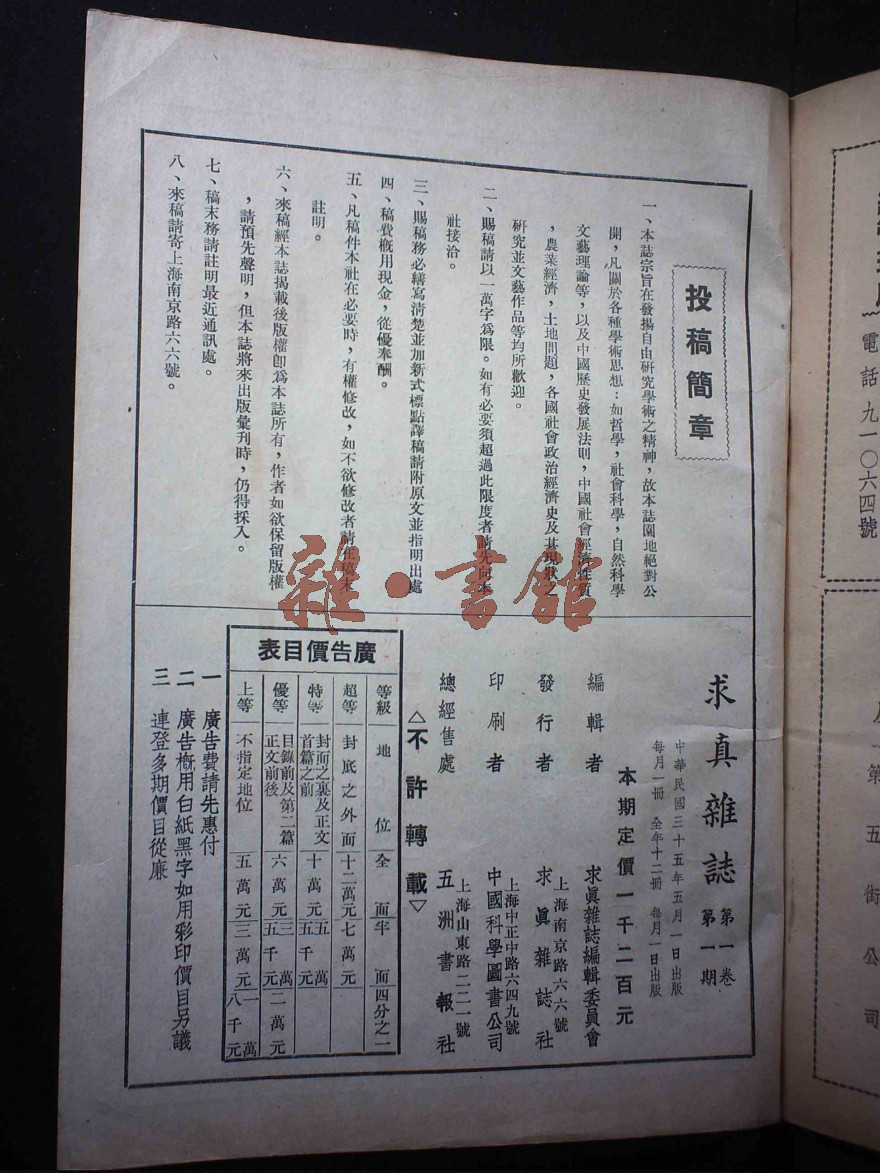 投稿簡章
一、本誌宗旨在發揚自由研究學術之精神，故本誌園地絕對公
開，凡關於各種學術思想：如哲學，社會科學，自然科學
文藝理論等，以及中國歷史發展法則，中國社會經濟性質
，農業經濟，土地問題，各國社會政治經濟史及其現狀之
研究並文藝作品等均所歡迎。
二、賜稿請以一萬字爲限。如有必要須超過此限度者請先向本
社接洽。
三、賜稿務必繕寫清楚並加新式標點譯稿請附原文並指明出處
四、稿費概用現金，從優奉酬。
五、凡稿件本社在必要時，有權修改，如不欲修改者請在稿末
註明。
六、來稿經本誌揭載後版權卽爲本誌所有，作者如欲保留版權
，請預先聲明，但本誌將來出版彙刊時，仍得採入。
七、稿末務請註明最近通訊處。
八、來稿請寄上海南京路六六號。
雜·書館
求真雜誌 第一卷 第一期
中華民國三十五年五月一日出版
每月一冊 全年十二冊 每月一日出版
本期定價一千二百元
編輯者 求眞雜誌編輯委員會
上海南京路六六號
發行者 求眞雜誌社
上海中正中路六四九號
印刷者 中國科學圖書公司
上海山東路二二一號
總經售處 五洲書報社
△不許轉載▽
廣告價目表
等級 地位 全面 半面 四分之一
超等 封底之外面 十二萬元 七萬元
特等 封面之裏及正文首篇之前 十萬元 五萬五千元
優等 目錄前及第二篇正文前後 六萬元 三萬五千元 二萬元
上等 不指定地位 五萬元 三萬元 一萬八千元
一 廣告費請先惠付
二 廣告概用白紙黑字如用彩印價目另議
三 連登多期價目從廉
電話九一〇六四號
第五街公司